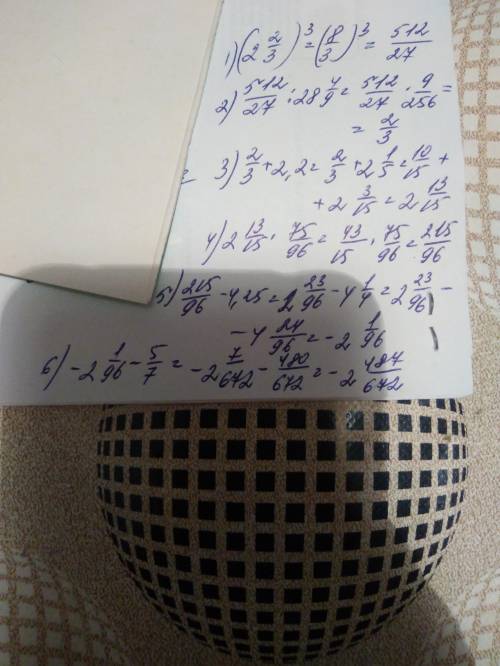 1) (2 2/3)³ = (8/3)³ = 512/27
2) 512/27 : 28 4/9 = 512/27 · 9/256 =
= 2/3
3) 2/3 + 2,2 = 2/3 + 2 1/5 = 10/15 +
+ 2 3/15 = 2 13/15
4) 2 13/15 · 75/96 = 43/15 · 75/96 = 215/96
5) 215/96 - 4,25 = 2 23/96 - 4 1/4 = 2 23/96 -
- 4 24/96 = - 2 1/96
6) - 2 1/96 - 5/7 = - 2 7/672 - 480/672 = - 2 487/672